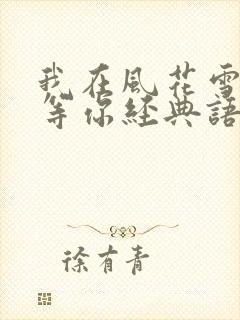 我在風花雪
等你經典語
徐有青